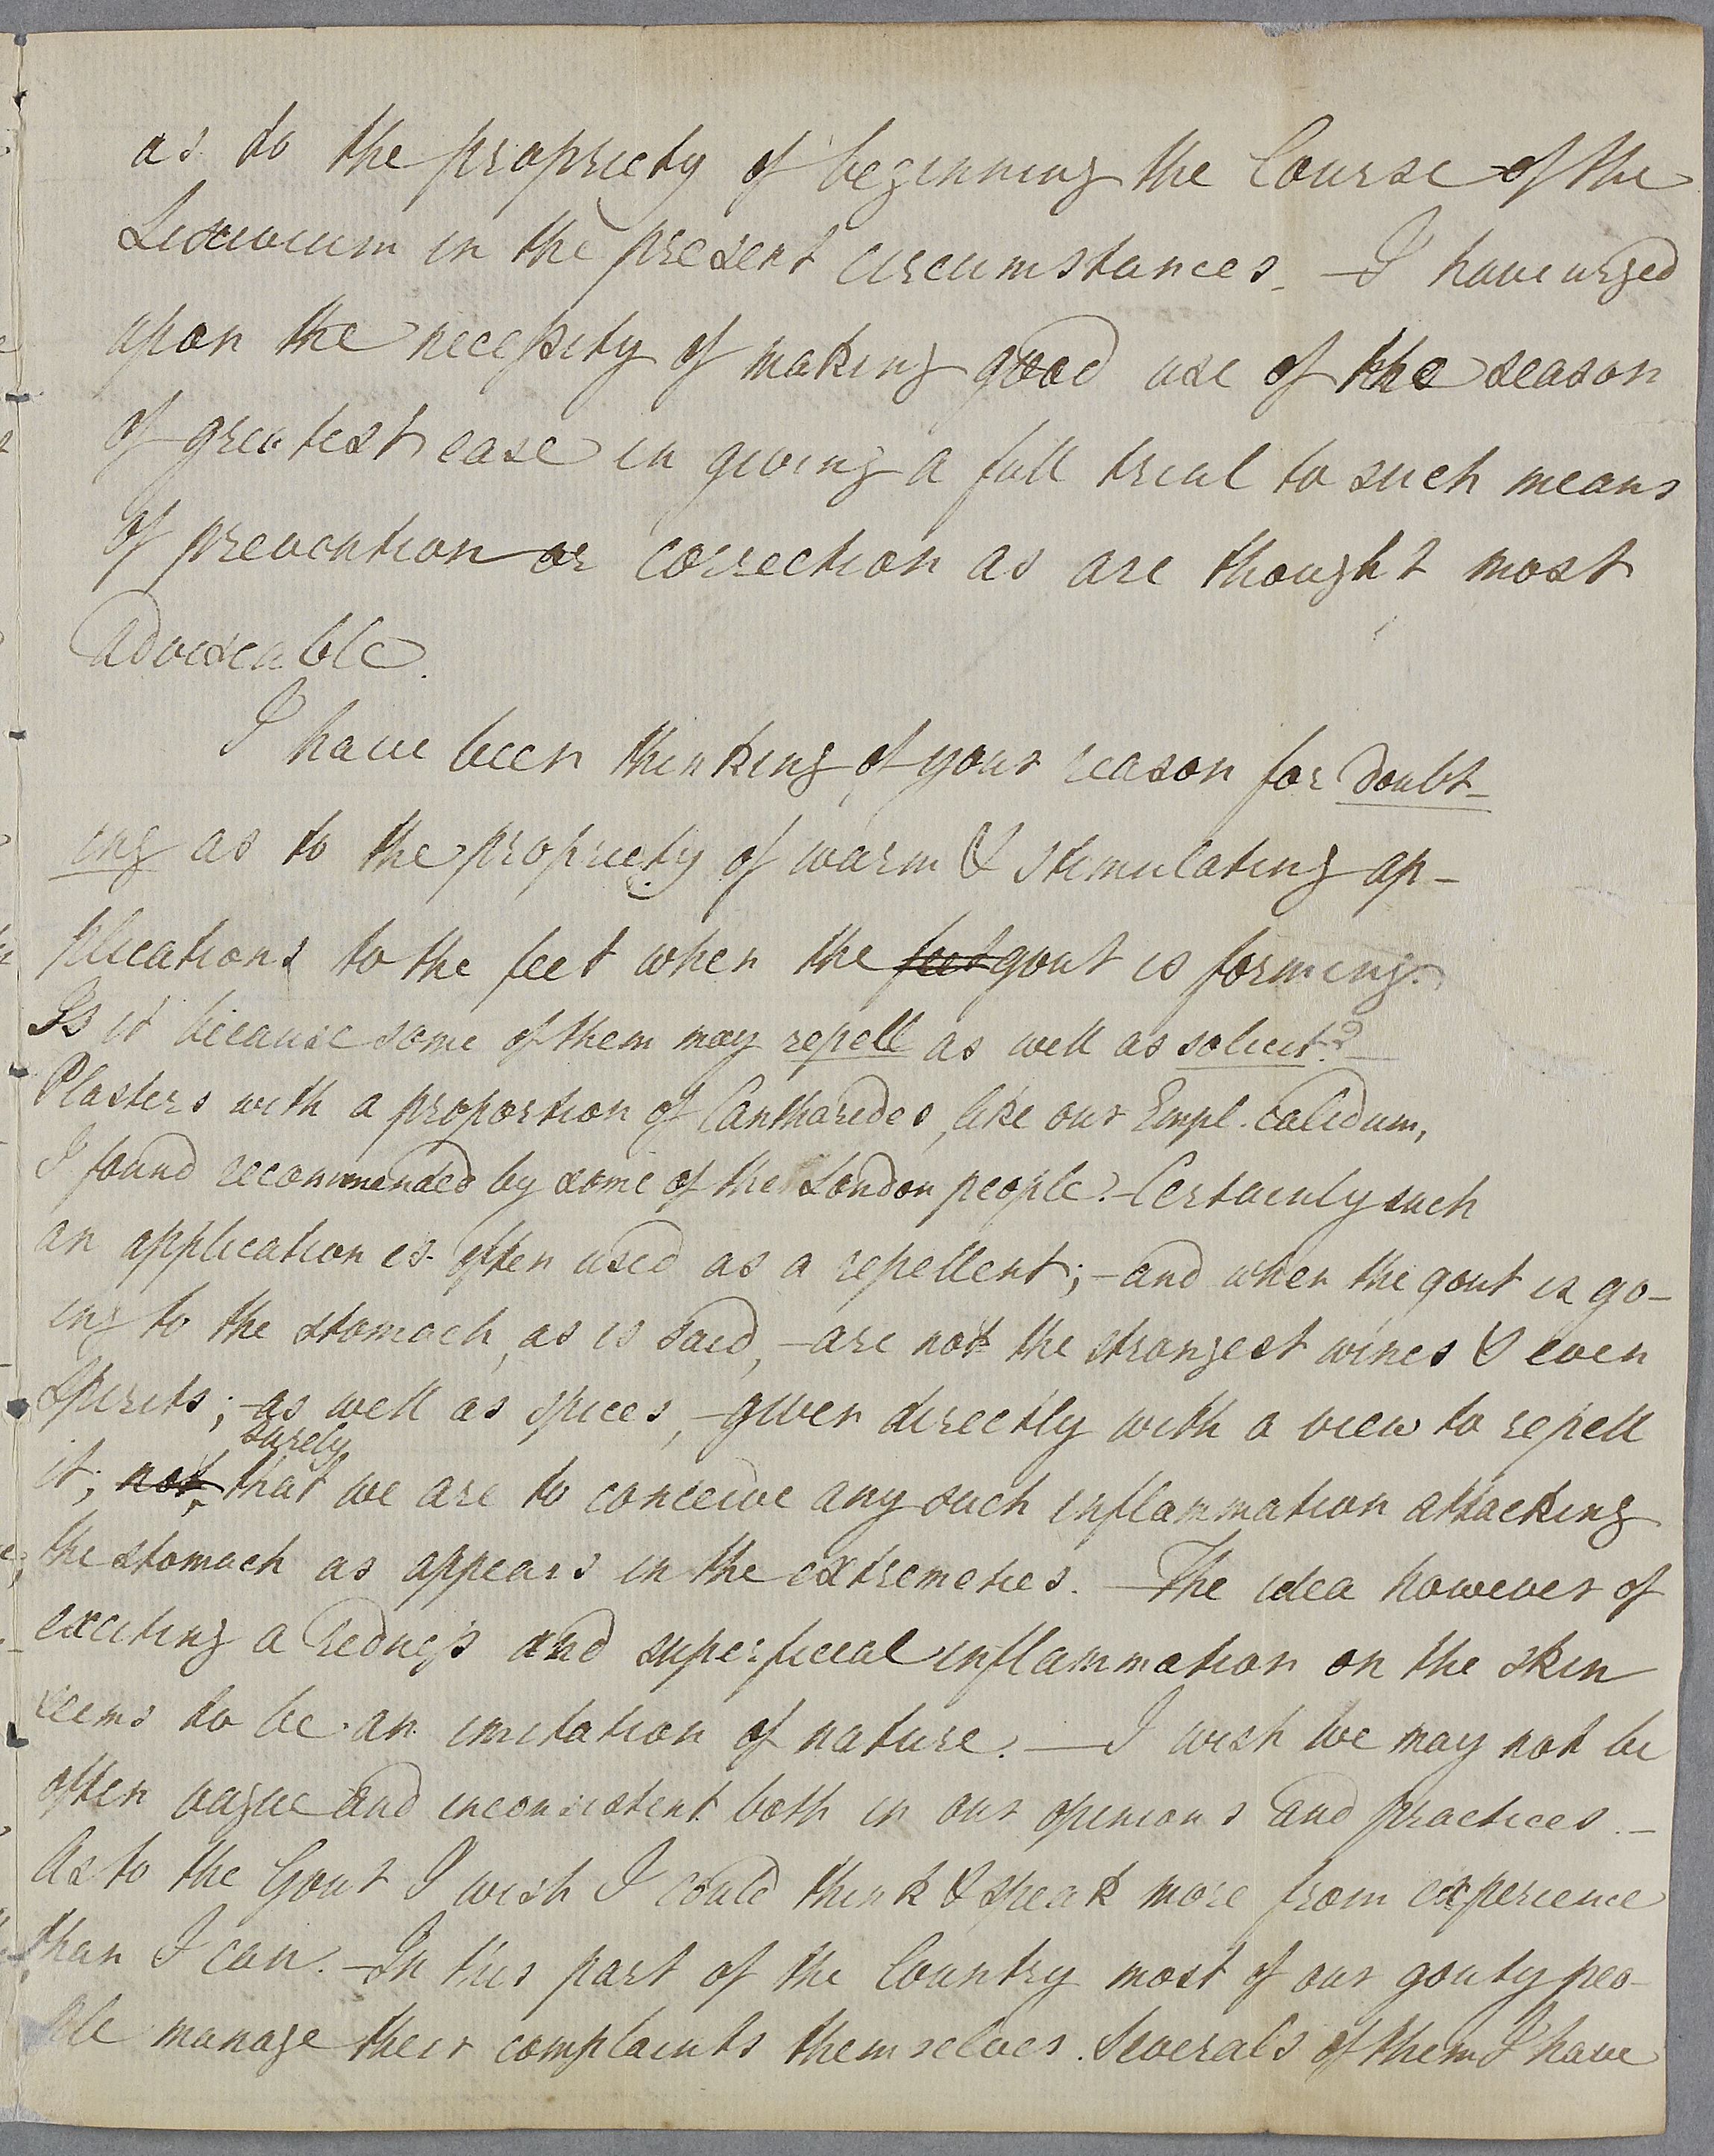 as to the propriety of beginning the Course of the
Lixivium in the present circumstances. – I have urged
upon the necessity of making good use of the season
of greatest ease in giving a full trial to such means
of prevention or correction as are thought most
adviseable.
I have been thinking of your reason for doubt-
ing as to the propriety of warm & stimulating ap-
plications to the feet when the feet gout is forming.
Is it because some of them may repell as well as solicit? –
Plasters with a proportion of Cantharides, like our Empl. calidum,
I found recommended by some of the London people. – Certainly such
an application is often used as a repellent; – and when the gout is go-
ing to the stomach, as is said, – are not the strongest wines & even
spirits; – as well as spices, – given directly with a view to repell
it; not surely that we are to conceive any such inflammation attacking
the stomach as appears in the extremeties. – The idea however of
exciting a redness and superficial inflammation on the skin
seems to be an imitation of nature. – I wish we may not be
often vague and inconsistent both in our opinions and practices. –
As to the Gout I wish I could think & speak more from experience
than I can. – In this part of the Country most of our gouty peo-
ple manage their complaints themselves. Severals of them I have